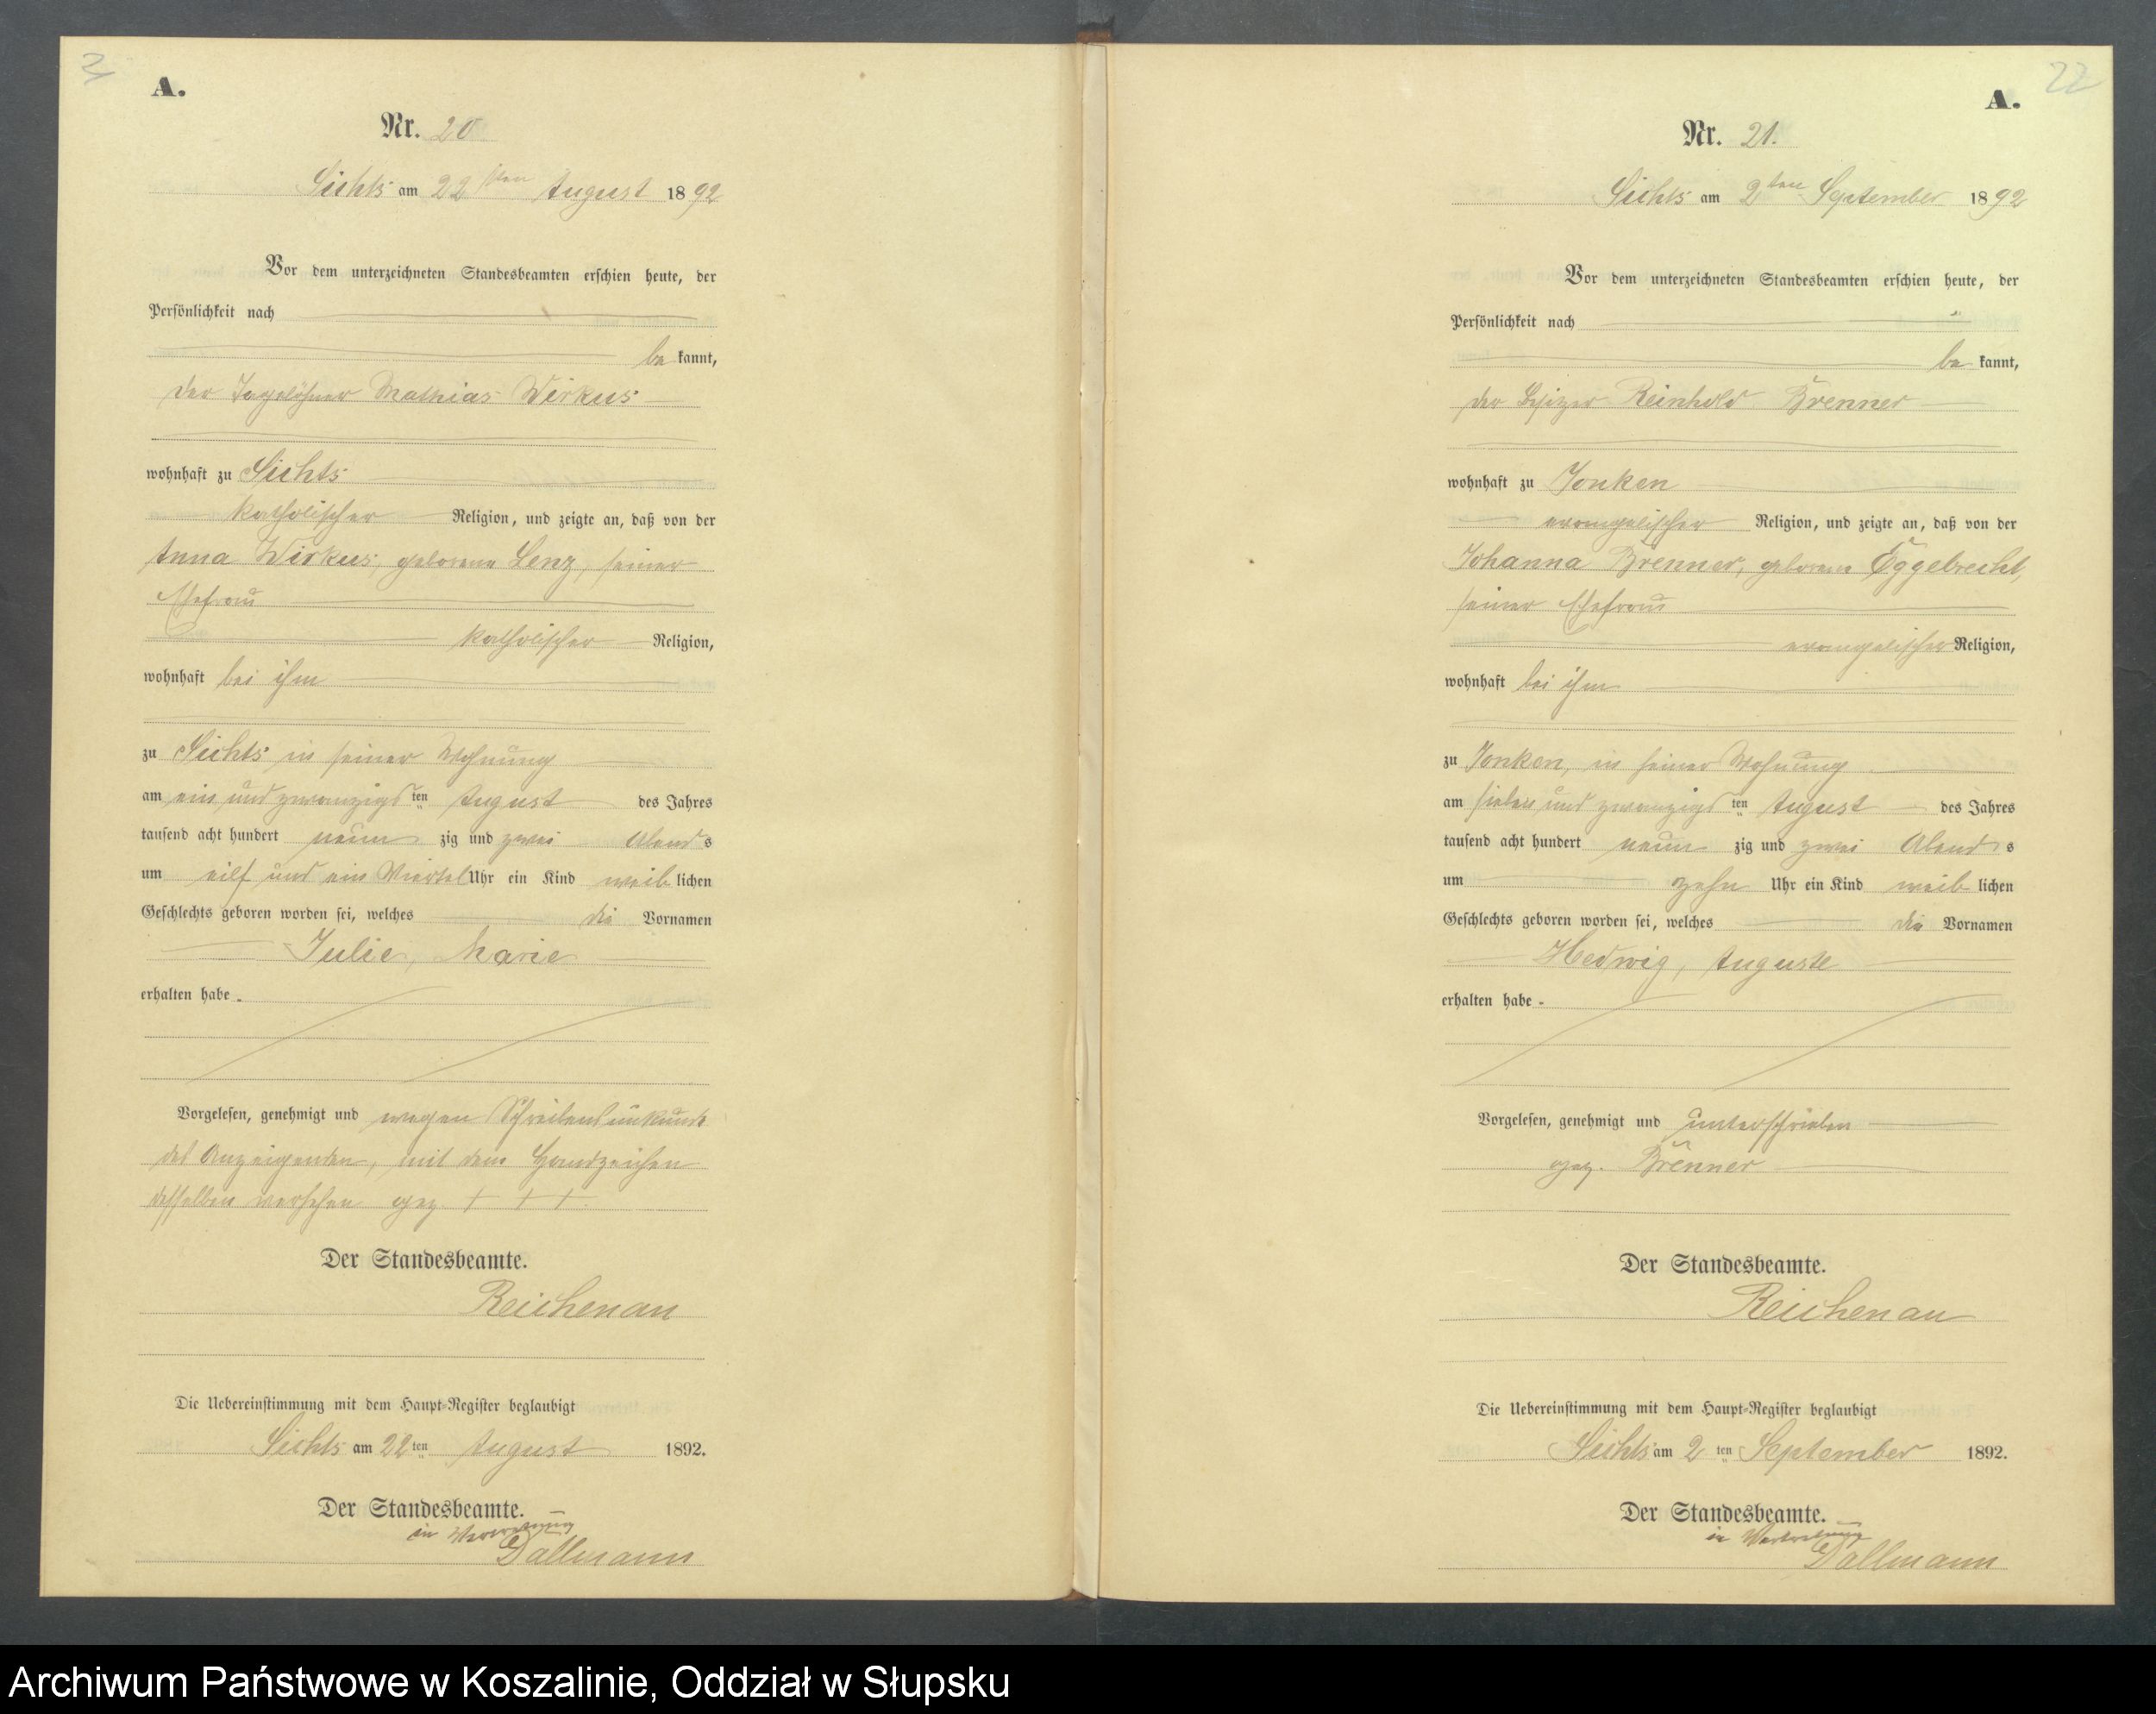 21
A.
Nr. 20
Lichts am 22sten August 1892
Vor dem unterzeichneten Standesbeamten erschien heute, der
Persönlichkeit nach
be kannt,
der Tagelöhner Mathias Wirkus
wohnhaft zu Sichts
katholischer Religion, und zeigte an, daß von der
Anna Wirkus, geborene Lenz, seiner
Ehefrau
katholischer Religion,
wohnhaft bei ihm
zu Sichts in seiner Wohnung
am ein und zwanzigsten August des Jahres
tausend acht hundert neun zig und zwei Abends
um eilf und ein Viertel Uhr ein Kind weib lichen
Geschlechts geboren worden sei, welches die Vornamen
Julie, Marie
erhalten habe.
Vorgelesen, genehmigt und wegen Schreibensunkunde
des Anzeigenden, mit dem Handzeichen
desselben versehen gez. + + +.
Der Standesbeamte.
Reichenau
Die Uebereinstimmung mit dem Haupt-Register beglaubigt
Sichts am 22ten August 1892.
Der Standesbeamte.
in Vertretung
Dallmann
22
A.
Nr. 21.
Sichts am 2ten September 1892
Vor dem unterzeichneten Standesbeamten erschien heute, der
Persönlichkeit nach
be kannt,
der Besitzer Reinhold Brenner
wohnhaft zu Jonken
evangelischer Religion, und zeigte an, daß von der
Johanna Brenner, geborene Eggebrecht,
seiner Ehefrau
evangelischer Religion,
wohnhaft bei ihm
zu Jonken, in seiner Wohnung
am sieben und zwanzigsten August des Jahres
tausend acht hundert neun zig und zwei Abends
um zehn Uhr ein Kind weib lichen
Geschlechts geboren worden sei, welches die Vornamen
Hedwig, Auguste
erhalten habe.
Vorgelesen, genehmigt und unterschrieben
gez. Brenner
Der Standesbeamte.
Reichenau
Die Uebereinstimmung mit dem Haupt-Register beglaubigt
Sichts am 2ten September 1892.
Der Standesbeamte.
in Vertretung
Dallmann
Archiwum Państwowe w Koszalinie, Oddział w Słupsku